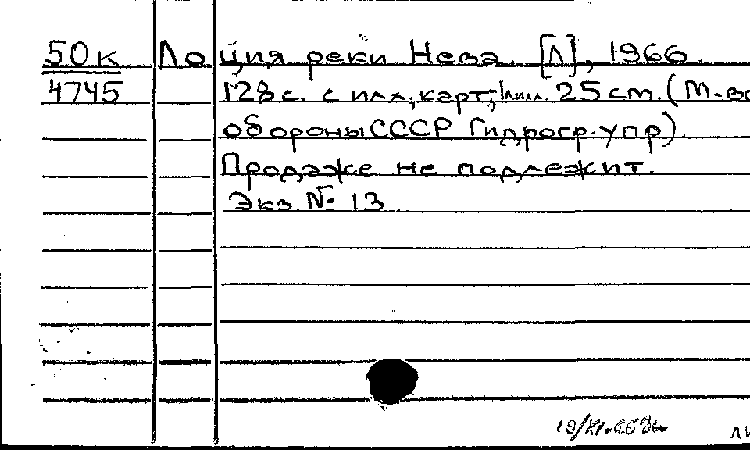 50к Лоция реки Нева. [Л], 1966.
4745 128 с. с илл, карт, 1 л. илл. 25 см. (М-во
обороны СССР Гидрогр. упр).
Продаже не подлежит.
Экз № 13